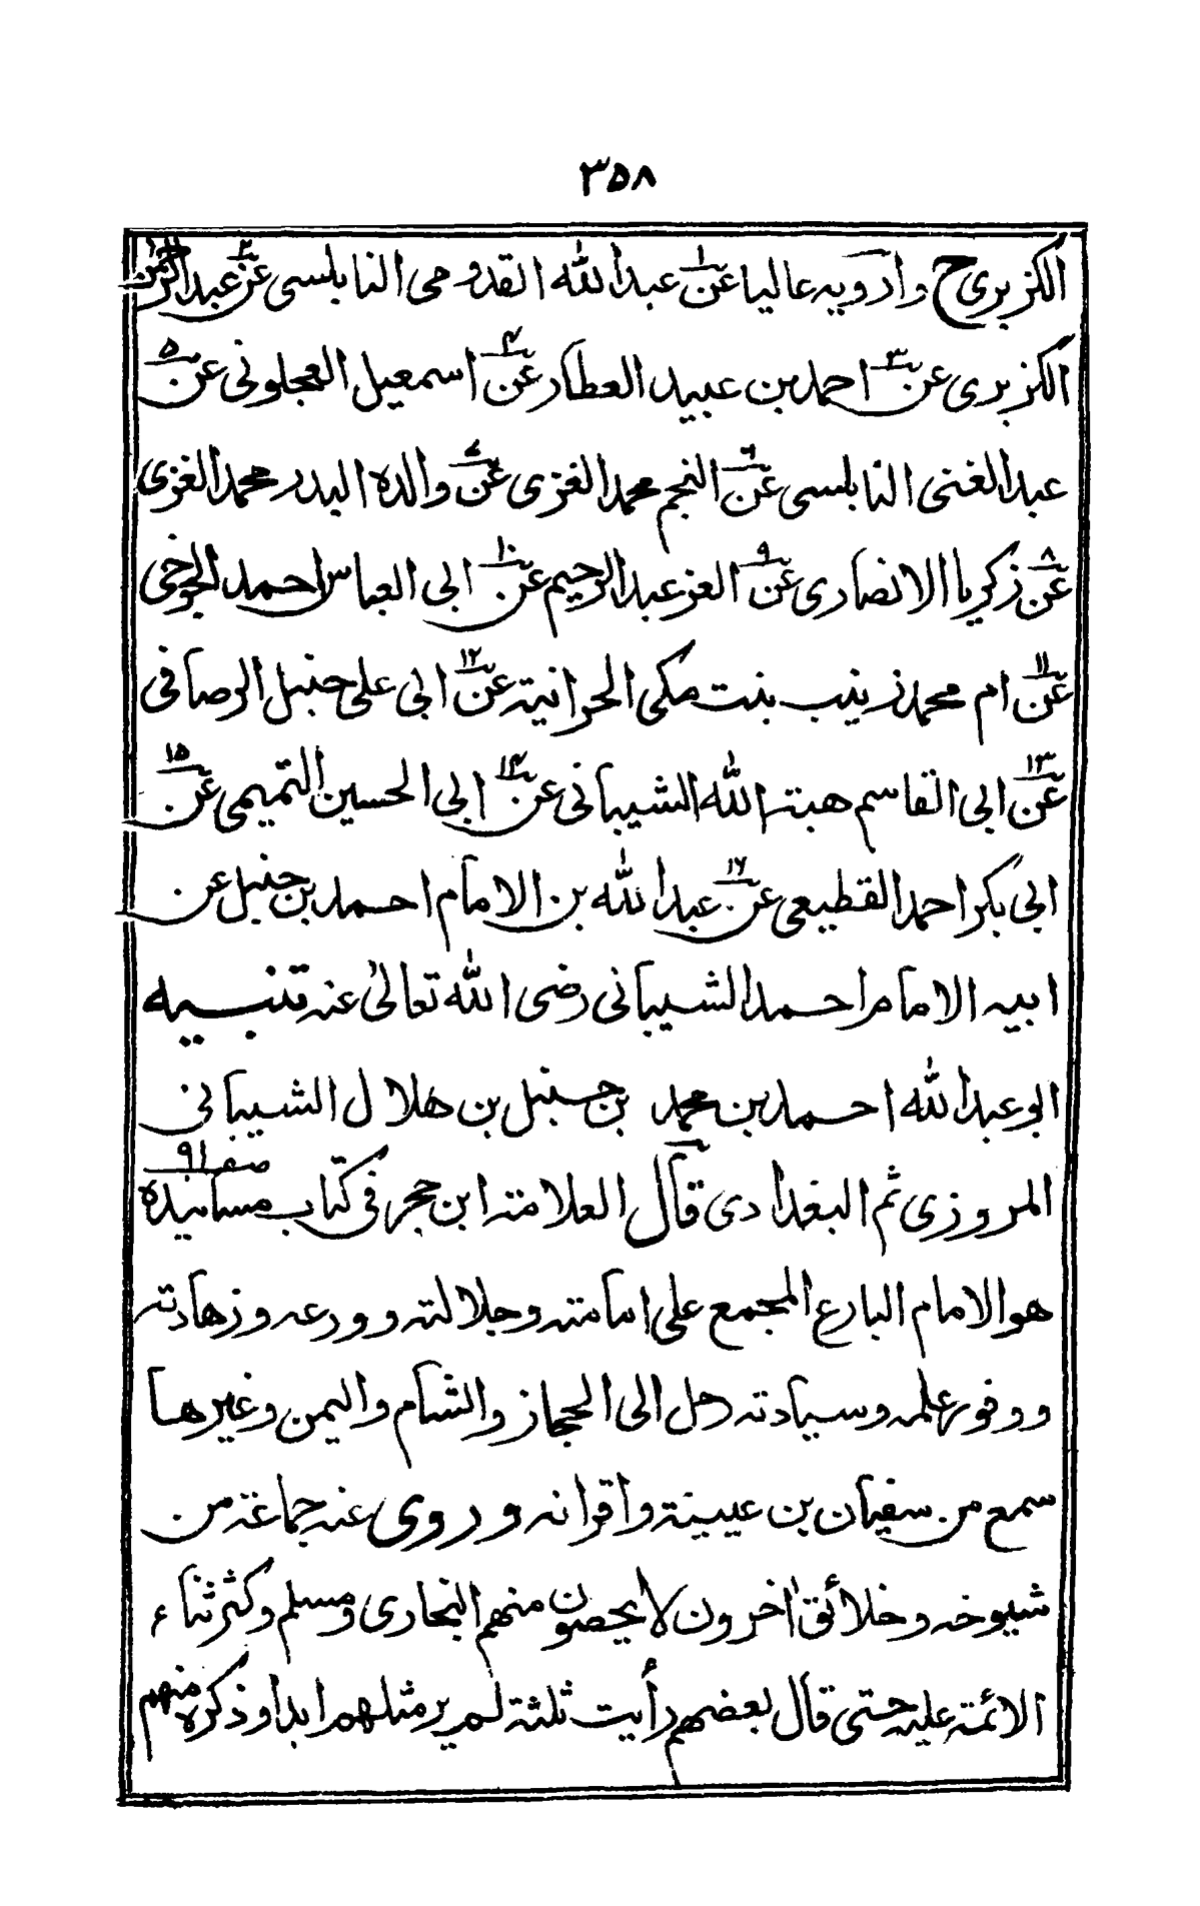 ٣٥٨
الكزبرى ح وارويه عاليا عن١ عبد الله القدومى النابلسى عن٢ عبد الرحمن
الكزبرى عن٣ احمد بن عبيد العطار عن٤ اسمعيل العجلونى عن٥
عبد الغنى النابلسى عن٦ النجم محمد الغزى عن٧ والده البدر محمد الغزى
عن٨ زكريا الانصارى عن٩ العز عبد الرحيم عن١٠ ابى العباس احمد الجوخى
عن١١ ام محمد زينب بنت مكى الحرانية عن١٢ ابى على حنبل الرصافى
عن١٣ ابى القاسم هبة الله الشيبانى عن١٤ ابى الحسين التميمى عن١٥
ابى بكر احمد القطيعى عن١٦ عبد الله بن الامام احمد بن حنبل عن
ابيه الامام احمد الشيبانى رضى الله تعالىٰ عنه تنبيه
ابو عبد الله احمد بن محمد بن حنبل بن هلال الشيبانى
المروزى ثم البغدادى قال العلامة ابن حجر فى كتاب مسانيده صفـ ٩١
هو الامام البارع المجمع على امامته وجلالته وورعه وزهادته
ووفور علمه وسيادته رحل الى الحجاز والشام واليمن وغيرها
سمع من سفيان بن عيينة واقرانه وروى عنه جماعة من
شيوخه وخلائق اٰخرون لا يحصون منهم البخارى ومسلم وكثر ثناء
الائمة عليه حتى قال بعضهم رأيت ثلثة لم ير مثلهم ابدا وذكره منهم